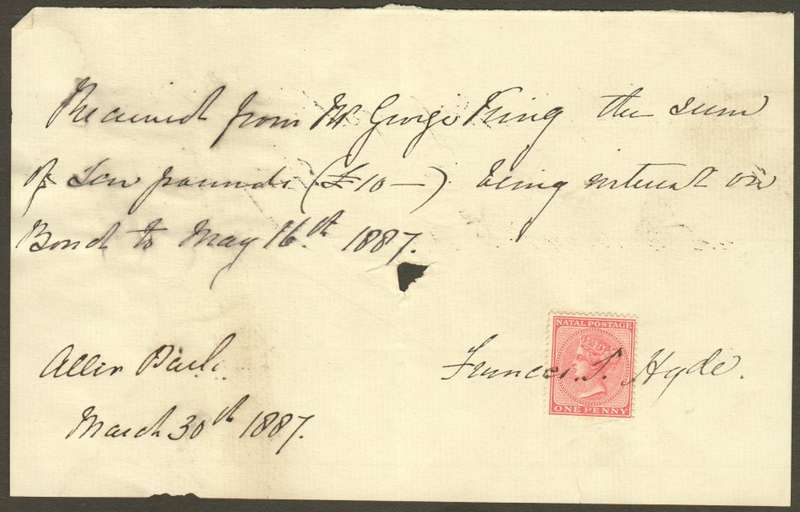 Received from Mr George King the sum
of Ten pounds (£10 —) being interest on
Bond to May 16th 1887.
NATAL POSTAGE
Frances. S. Hyde.
ONE PENNY
March 30th 1887.